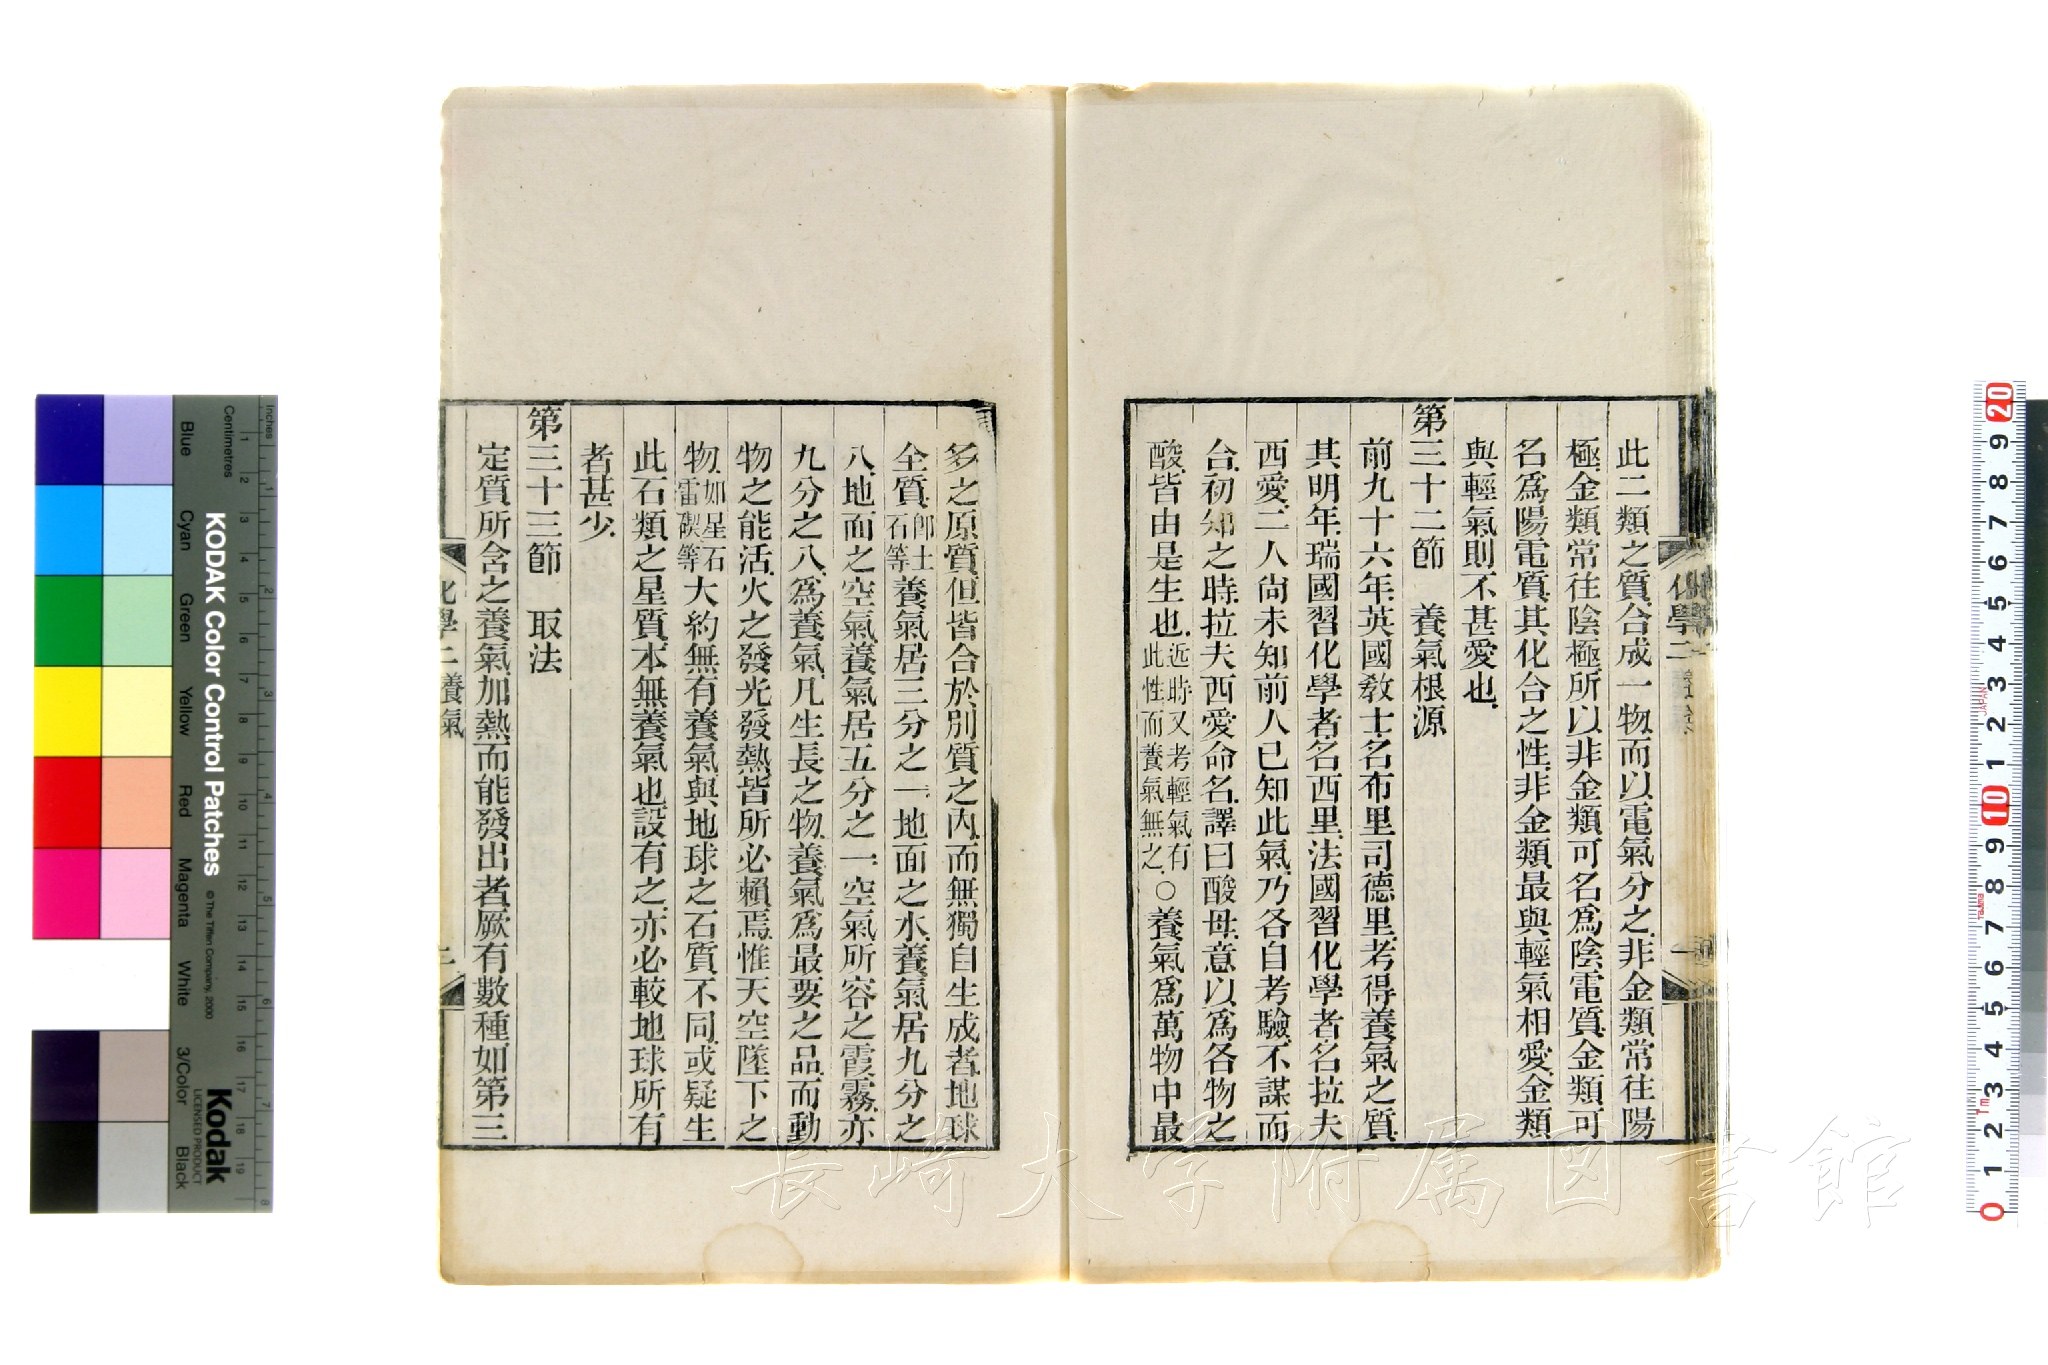 此二類之質合成一物而以電氣分之非金類常往陽
極金類常往陰極所以非金類可名爲陰電質金類可
名爲陽電質其化合之性非金類最與輕氣相愛金類
與輕氣則不甚愛也
第三十二節 養氣根源
前九十六年英國教士名布里司德里考得養氣之質
其明年瑞國習化學者名西里法國習化學者名拉夫
西愛二人尚未知前人已知此氣乃各自考驗不謀而
合初知之時拉夫西愛命名譯曰酸母意以爲各物之
酸皆由是生也近時又考輕氣有此性而養氣無之○養氣爲萬物中最
多之原質但皆合於別質之內而無獨自生成者地球
全質卽土石等養氣居三分之一地面之水養氣居九分之
八地面之空氣養氣居五分之一空氣所容之霞霧亦
九分之八爲養氣凡生長之物養氣爲最要之品而動
物之能活火之發光發熱皆所必賴焉惟天空墜下之
物如星石雷等大約無有養氣與地球之石質不同或疑生
此石類之星質本無養氣也設有之亦必較地球所有
者甚少
第三十三節 取法
定質所含之養氣加熱而能發出者厥有數種如第三
化學二
一
化學二 養氣
二
長崎大学附属図書館
KODAK Color Control Patches
© The Tiffen Company, 2000
Kodak
LICENSED PRODUCT
Inches
Centimetres
Blue
Cyan
Green
Yellow
Red
Magenta
White
3/Color
Black
1 2 3 4 5 6 7 8
1 2 3 4 5 6 7 8 9 10 11 12 13 14 15 16 17 18 19
0 1 2 3 4 5 6 7 8 9 10 1 2 3 4 5 6 7 8 9 20
JAPAN